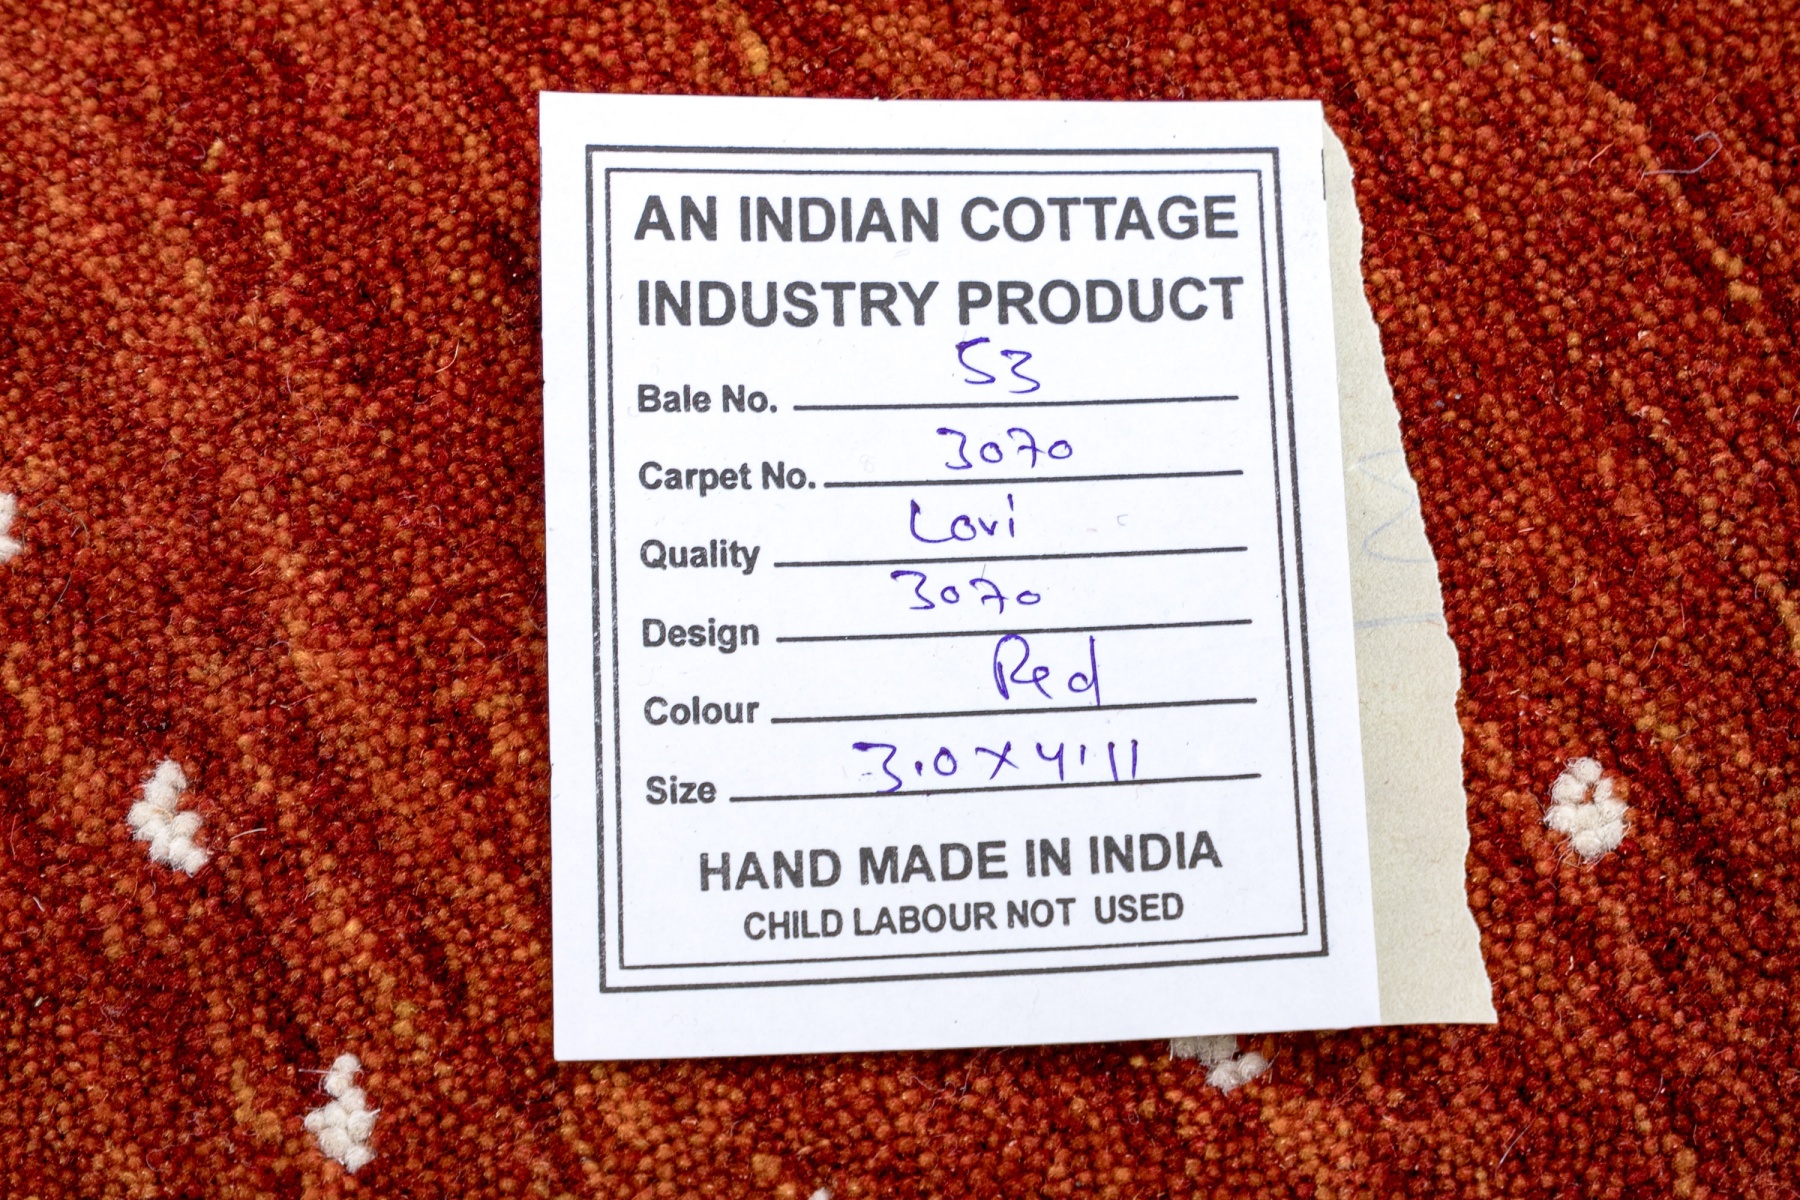 AN INDIAN COTTAGE
INDUSTRY PRODUCT
Bale No. 53
Carpet No. 3070
Quality Lovi
Design 3070
Colour Red
Size 3.0 X 4'11
HAND MADE IN INDIA
CHILD LABOUR NOT USED